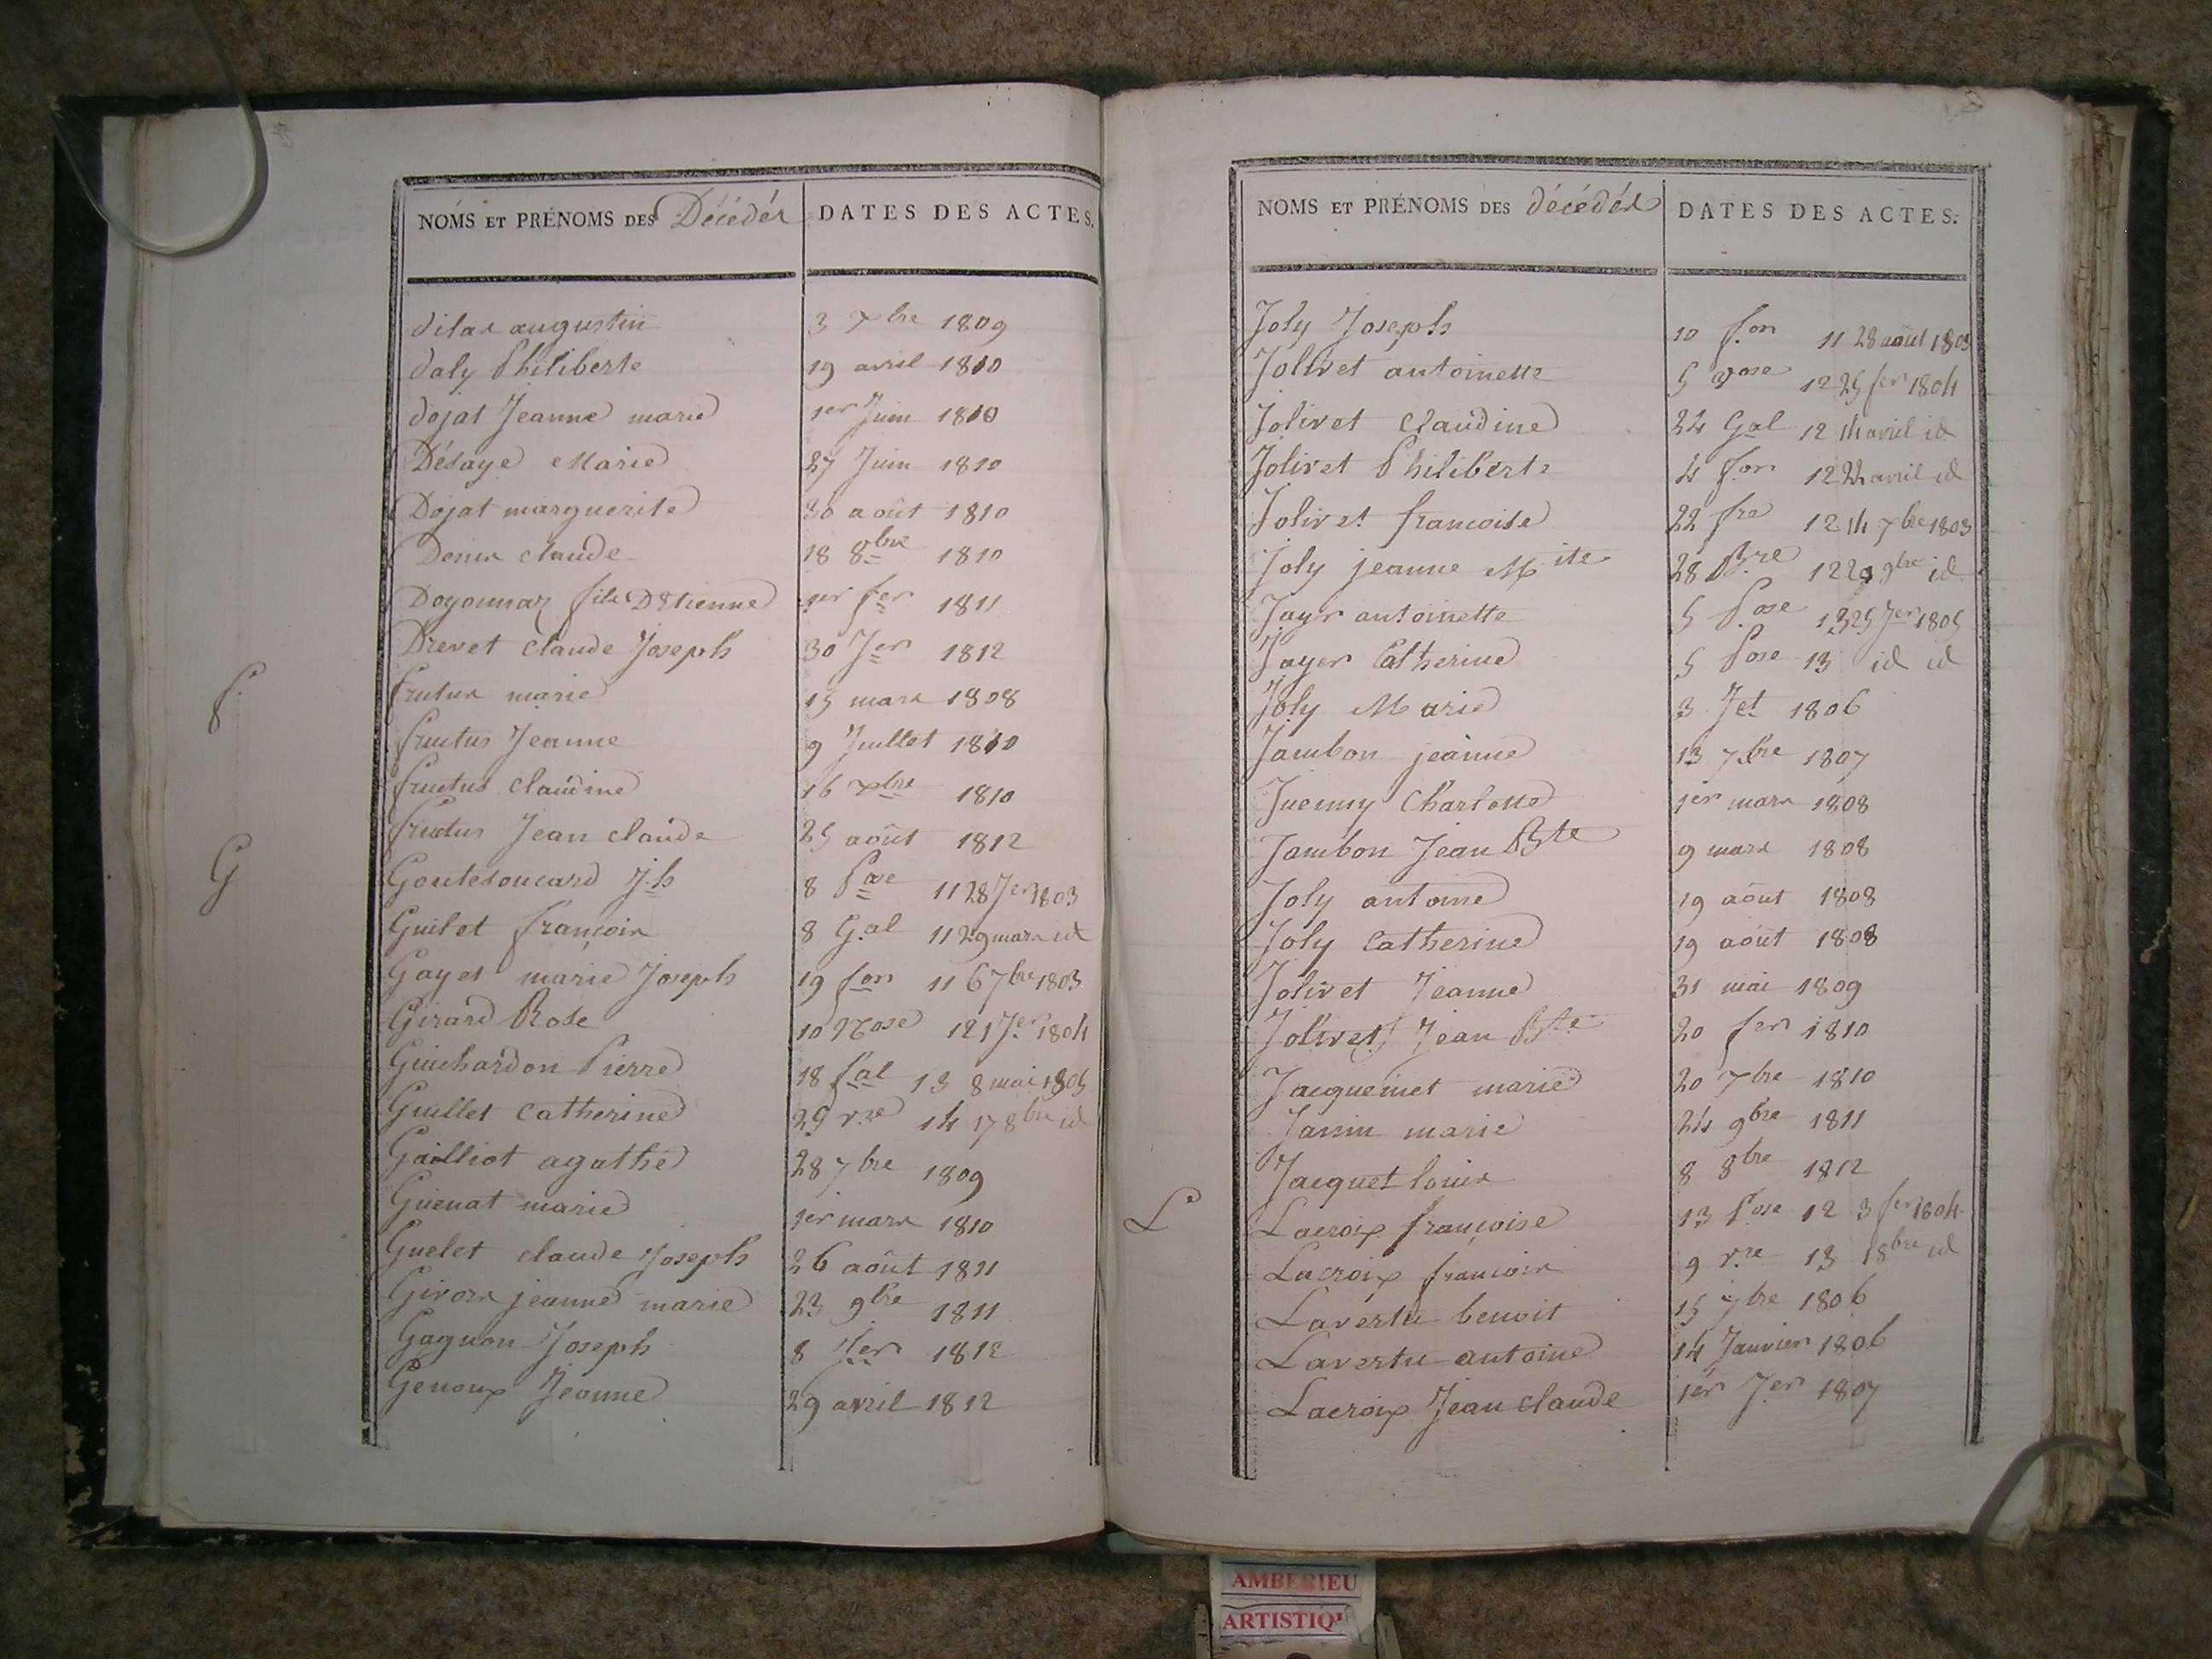 NOMS ET PRÉNOMS DES Décédés DATES DES ACTES.
Dilas augustin 3 xbre 1809
Daly Philiberte 19 avril 1810
Dojat Jeanne marie 1er Juin 1810
Désaye Marie 27 Juin 1810
Dojat marguerite 30 août 1810
claude 18 8bre 1810
Doyonnax fils D'Etienne 1er fer 1811
Drevet Claude Joseph 30 Jer 1812
F
marie 15 mars 1808
fructus Jeanne 9 Juillet 1810
fructus Claudine 16 xbre 1810
fructus Jean claude 25 août 1812
G
Goutesoucard Jh 8 Pose 11 28 Jer 1803
Guilet françois 8 Gal 11 29 mars id
Gayet marie Joseph 19 fon 11 6 7bre 1803
Girard Rose 10 Nose 12 1 Jer 1804
Guichardon Pierre 18 fal 13 8 mai 1805
Guillet Catherine 25 vre 14 17 8bre id
Gailliot agathe 28 7bre 1809
Guenat marie 1er mars 1810
Guelet claude Joseph 26 août 1811
Givors jeanne marie 23 9bre 1811
Gagnon Joseph 8 Jer 1812
Genoux Jeanne 29 avril 1812
NOMS ET PRÉNOMS DES décédés DATES DES ACTES.
Joly Joseph 10 fon 11 28 août 1803
Jolivet antoinette 5 vose 12 25 fer 1804
Jolivet Claudine 24 Gal 12 14 avril id
Jolivet Philiberte 4 fon 12 24 avril id
Jolivet francoise 22 fre 12 14 xbre 1803
Joly jeanne Mite 28 Bre 12 20 9bre id
Jayr antoinette 5 Pose 13 25 Jer 1805
Jayer Catherine 5 Pose 13 id id
Joly Marie 3 Jet 1806
Jambon jeanne 13 7bre 1807
Juenny Charlotte 1er mars 1808
Jambon Jean Bte 9 mars 1808
Joly antoine 19 août 1808
Joly Catherine 19 août 1808
Jolivet Jeanne 31 mai 1809
Jolivet Jean Bte 20 fer 1810
Jacquemet marie 20 7bre 1810
Janin marie 24 9bre 1811
Jacquet louis 8 8bre 1812
L
Lacroix françoise 13 Pose 12 3 fer 1804
Lacroix francois 9 vre 13 1 8bre id
Lavertu benoit 15 7bre 1806
Lavertu antoine 14 Janvier 1806
Lacroix Jean Claude 1er Jer 1807
AMBERIEU
ARTISTIQ